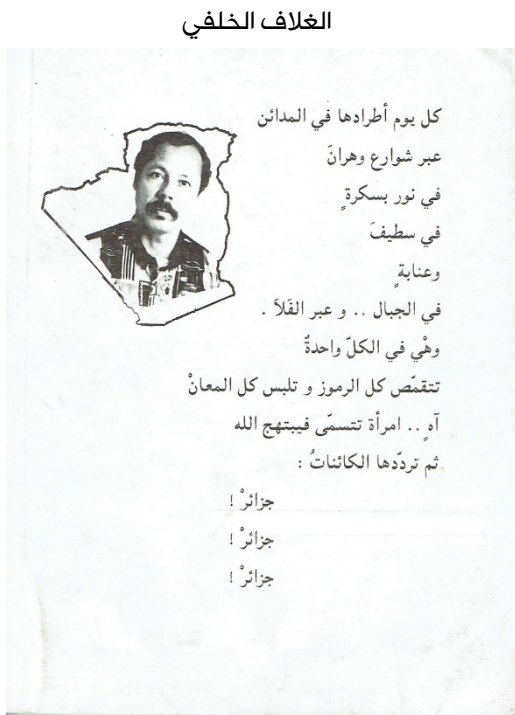 الغلاف الخلفي
كل يوم أطرادها في المدائن
عبر شوارع وهرانَ
في نور بسكرةٍ
في سطيفَ
وعنابةٍ
في الجبال .. و عبر الفَلاَ .
وهْي في الكلّ واحدةٌ
تتقمّص كل الرموز و تلبس كل المعانْ
آهٍ .. امرأة تتسمّى فيبتهج الله
ثم تردّدها الكائناتُ :
جزائرْ !
جزائرْ !
جزائرْ !